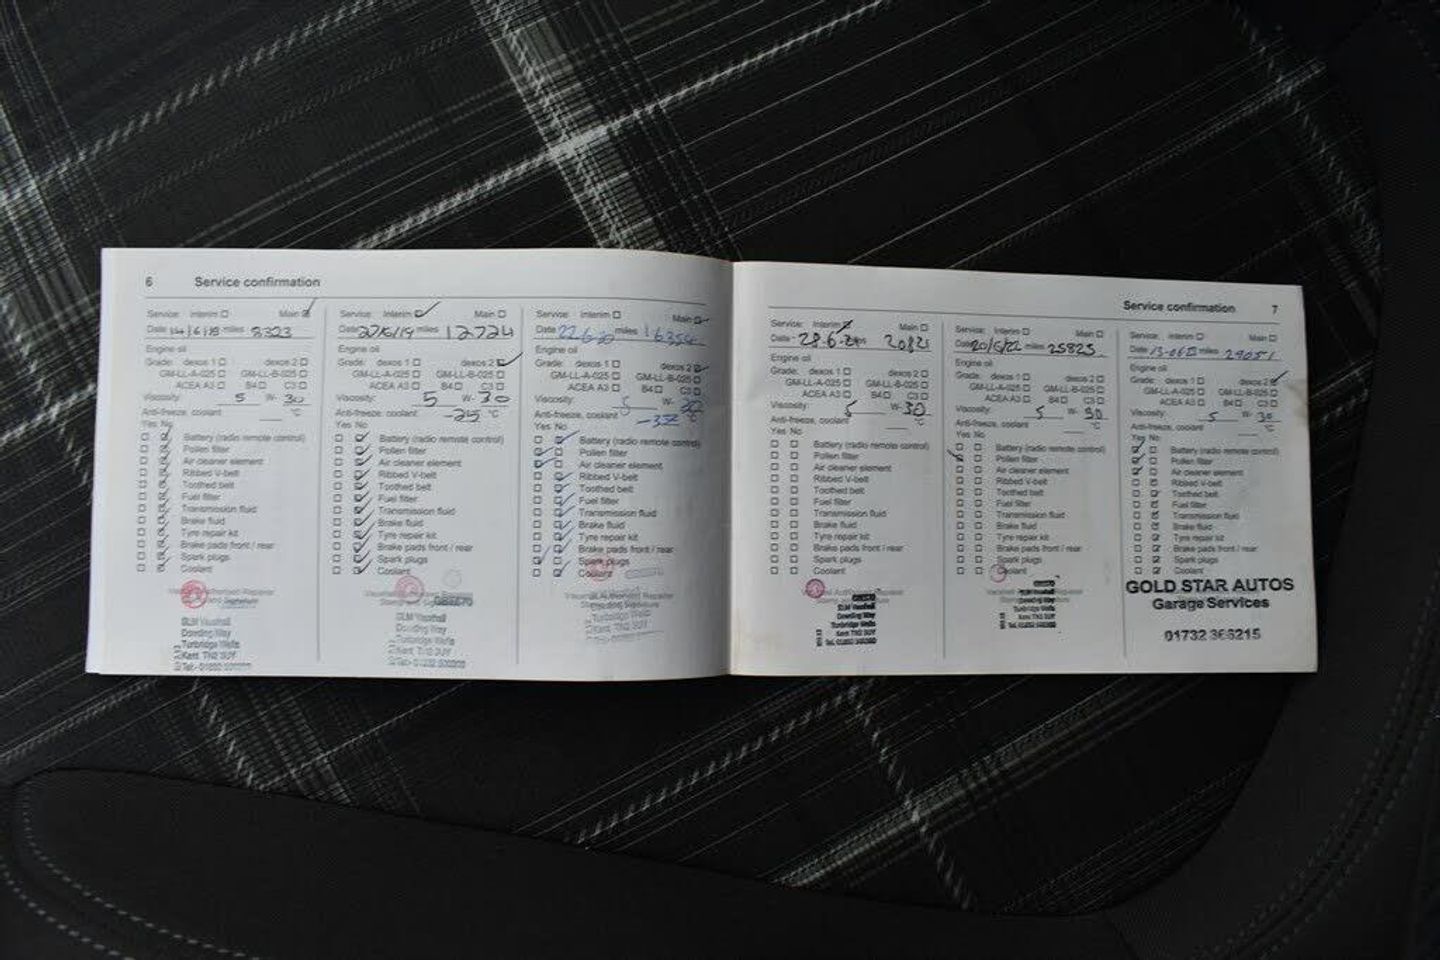 6 Service confirmation
Service: Interim Main
Date 14/6/18 miles 8323
Engine oil
Grade: dexos 1 dexos 2
GM-LL-A-025 GM-LL-B-025
ACEA A3 B4 C3
Viscosity: 5 W- 30
Anti-freeze, coolant °C
Yes No
Battery (radio remote control)
Pollen filter
Air cleaner element
Ribbed V-belt
Toothed belt
Fuel filter
Transmission fluid
Brake fluid
Tyre repair kit
Brake pads front / rear
Spark plugs
Coolant
SLM Vauxhall
Dowding Way
Tunbridge Wells
Kent TN2 3UY
Service: Interim Main
Date 27/6/19 miles 12724
Engine oil
Grade: dexos 1 dexos 2
GM-LL-A-025 GM-LL-B-025
ACEA A3 B4 C3
Viscosity: 5 W- 30
Anti-freeze, coolant -25 °C
Yes No
Battery (radio remote control)
Pollen filter
Air cleaner element
Ribbed V-belt
Toothed belt
Fuel filter
Transmission fluid
Brake fluid
Tyre repair kit
Brake pads front / rear
Spark plugs
Coolant
SLM Vauxhall
Dowding Way
Tunbridge Wells
Kent TN2 3UY
Service: Interim Main
Date 22.6.20 miles 16354
Engine oil
Grade: dexos 1 dexos 2
GM-LL-A-025 GM-LL-B-025
ACEA A3 B4 C3
Viscosity: 5 W- 30
Anti-freeze, coolant -37 °C
Yes No
Battery (radio remote control)
Pollen filter
Air cleaner element
Ribbed V-belt
Toothed belt
Fuel filter
Transmission fluid
Brake fluid
Tyre repair kit
Brake pads front / rear
Spark plugs
Coolant
Vauxhall Authorised Repairer
Tunbridge Wells
Kent TN2 3UY
Service confirmation 7
Service: Interim Main
Date 28.6. 20821
Engine oil
Grade: dexos 1 dexos 2
GM-LL-A-025 GM-LL-B-025
ACEA A3 B4 C3
Viscosity: 5 W- 30
Anti-freeze, coolant °C
Yes No
Battery (radio remote control)
Pollen filter
Air cleaner element
Ribbed V-belt
Toothed belt
Fuel filter
Transmission fluid
Brake fluid
Tyre repair kit
Brake pads front / rear
Spark plugs
Coolant
SLM Vauxhall
Dowding Way
Tunbridge Wells
Kent TN2 3UY
Service: Interim Main
Date 20/6/22 miles 25825
Engine oil
Grade: dexos 1 dexos 2
GM-LL-A-025 GM-LL-B-025
ACEA A3 B4 C3
Viscosity: 5 W- 30
Anti-freeze, coolant °C
Yes No
Battery (radio remote control)
Pollen filter
Air cleaner element
Ribbed V-belt
Toothed belt
Fuel filter
Transmission fluid
Brake fluid
Tyre repair kit
Brake pads front / rear
Spark plugs
Coolant
SLM Vauxhall
Dowding Way
Tunbridge Wells
Kent TN2 3UY
Service: Interim Main
Date 13-06 miles 29051
Engine oil
Grade: dexos 1 dexos 2
GM-LL-A-025 GM-LL-B-025
ACEA A3 B4 C3
Viscosity: 5 W- 30
Anti-freeze, coolant °C
Yes No
Battery (radio remote control)
Pollen filter
Air cleaner element
Ribbed V-belt
Toothed belt
Fuel filter
Transmission fluid
Brake fluid
Tyre repair kit
Brake pads front / rear
Spark plugs
Coolant
GOLD STAR AUTOS
Garage Services
01732 366215